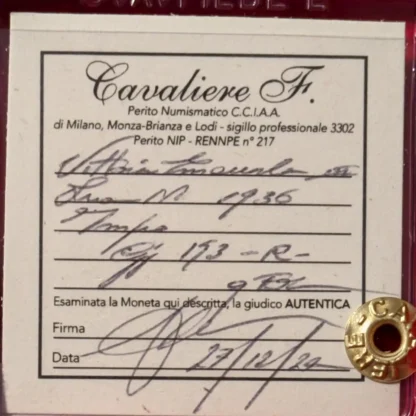 Cavaliere F.
Perito Numismatico C.C.I.A.A.
di Milano, Monza-Brianza e Lodi - sigillo professionale 3302
Perito NIP - RENNPE n° 217
Vittorio Emanuele III
1936
Impero
193 - R -
Esaminata la Moneta qui descritta, la giudico AUTENTICA
Firma
Data 27/12/24